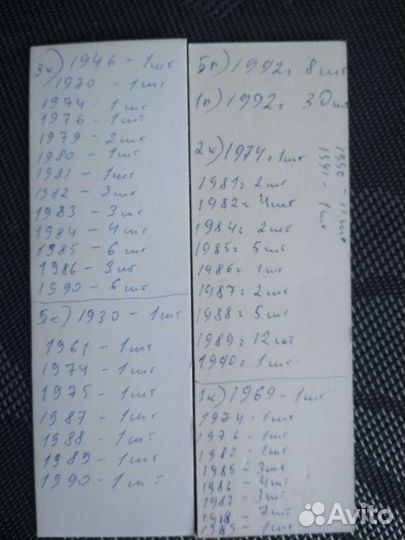 3к) 1946 - 1шт
1970 - 1шт
1974 - 1шт
1976 - 1шт
1979 - 2шт
1980 - 1шт
1981 - 1шт
1982 - 3шт
1983 - 3шт
1984 - 4шт
1985 - 6шт
1986 - 3шт
1990 - 5шт
5к) 1930 - 1шт
1961 - 1шт
1974 - 1шт
1975 - 1шт
1987 - 1шт
1988 - 1шт
1989 - 1шт
1990 - 1шт
5р) 1992г 8шт
1р) 1992г 30шт
2к) 1974г 1шт
1981г 2шт
1982г 4шт
1984г 2шт
1985г 5шт
1986г 1шт
1987г 2шт
1988г 5шт
1989г 12шт
1990г 1шт
1990 - 11шт
1991 - 1шт
1к) 1969 - 1шт
1974 - 1шт
1976 - 1шт
1982 - 1шт
1985 - 3шт
1986 - 4шт
1987 - 3шт
1989 - 1шт
Avito